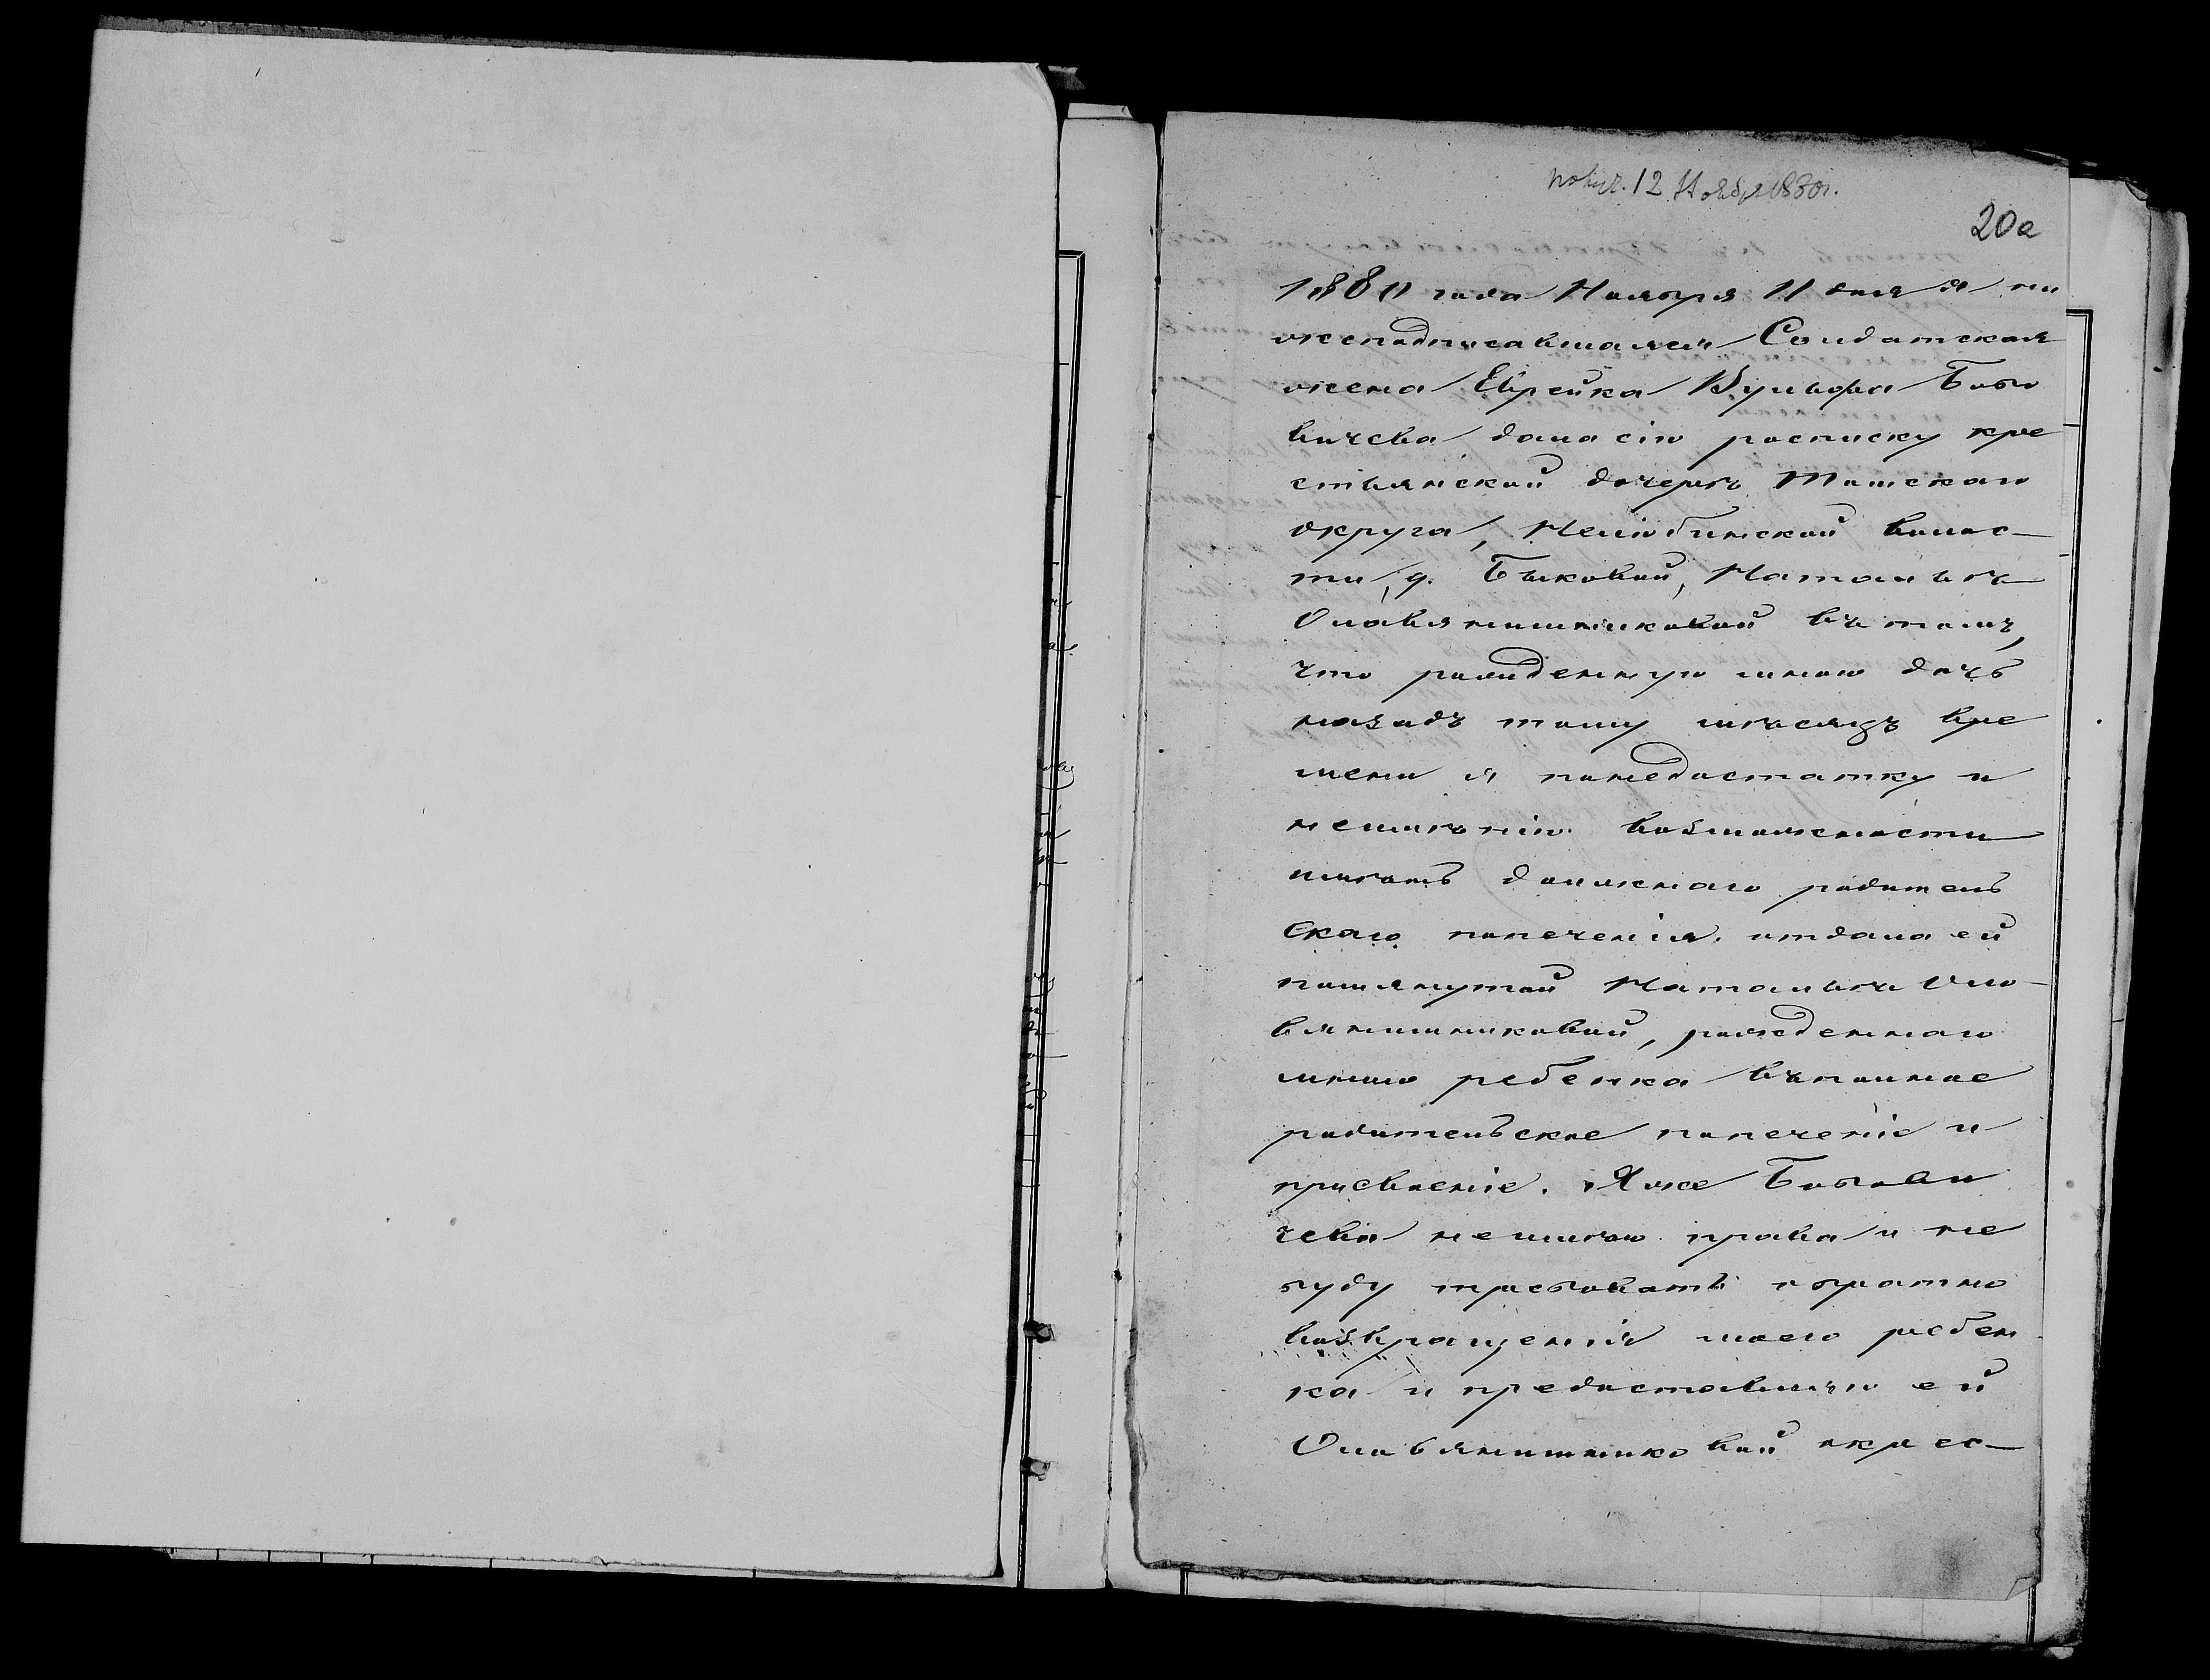 получ. 12 Ноября 1880 г.
20а
1880 года Ноября 11 дня я ни
жеподписавшаяся Солдатская
жена Еврейка Вульфа Бобо
вичева дала сію росписку кре
стьянской дочери Томскаго
округа, Нелюбинской волос-
ти, д. Быковой, Натальѣ
Оловянишниковой въ томъ,
что рожденную мною дочь
назадъ тому мѣсяцъ вре
мени я понедостатку и
неимѣнію возможности
имѣть должнаго родитель
скаго попеченія отдала ей
помянутой Натальѣ Оло-
вянишниковой, рожденнаго
мною ребенка вполное
родительское попеченіе и
присвоеніе. Я же Бобови
чева неимѣю права и не
буду требовать обратно
возвращенія моего ребен
ка и предоставляю ей
Оловянишниковой окрес-